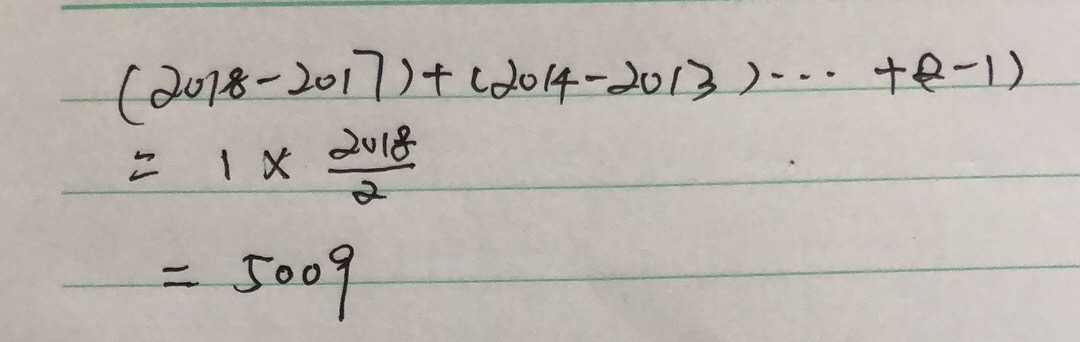 (2018-2017)+(2014-2013)... +(2-1)
= 1 × 2018/2
= 5009